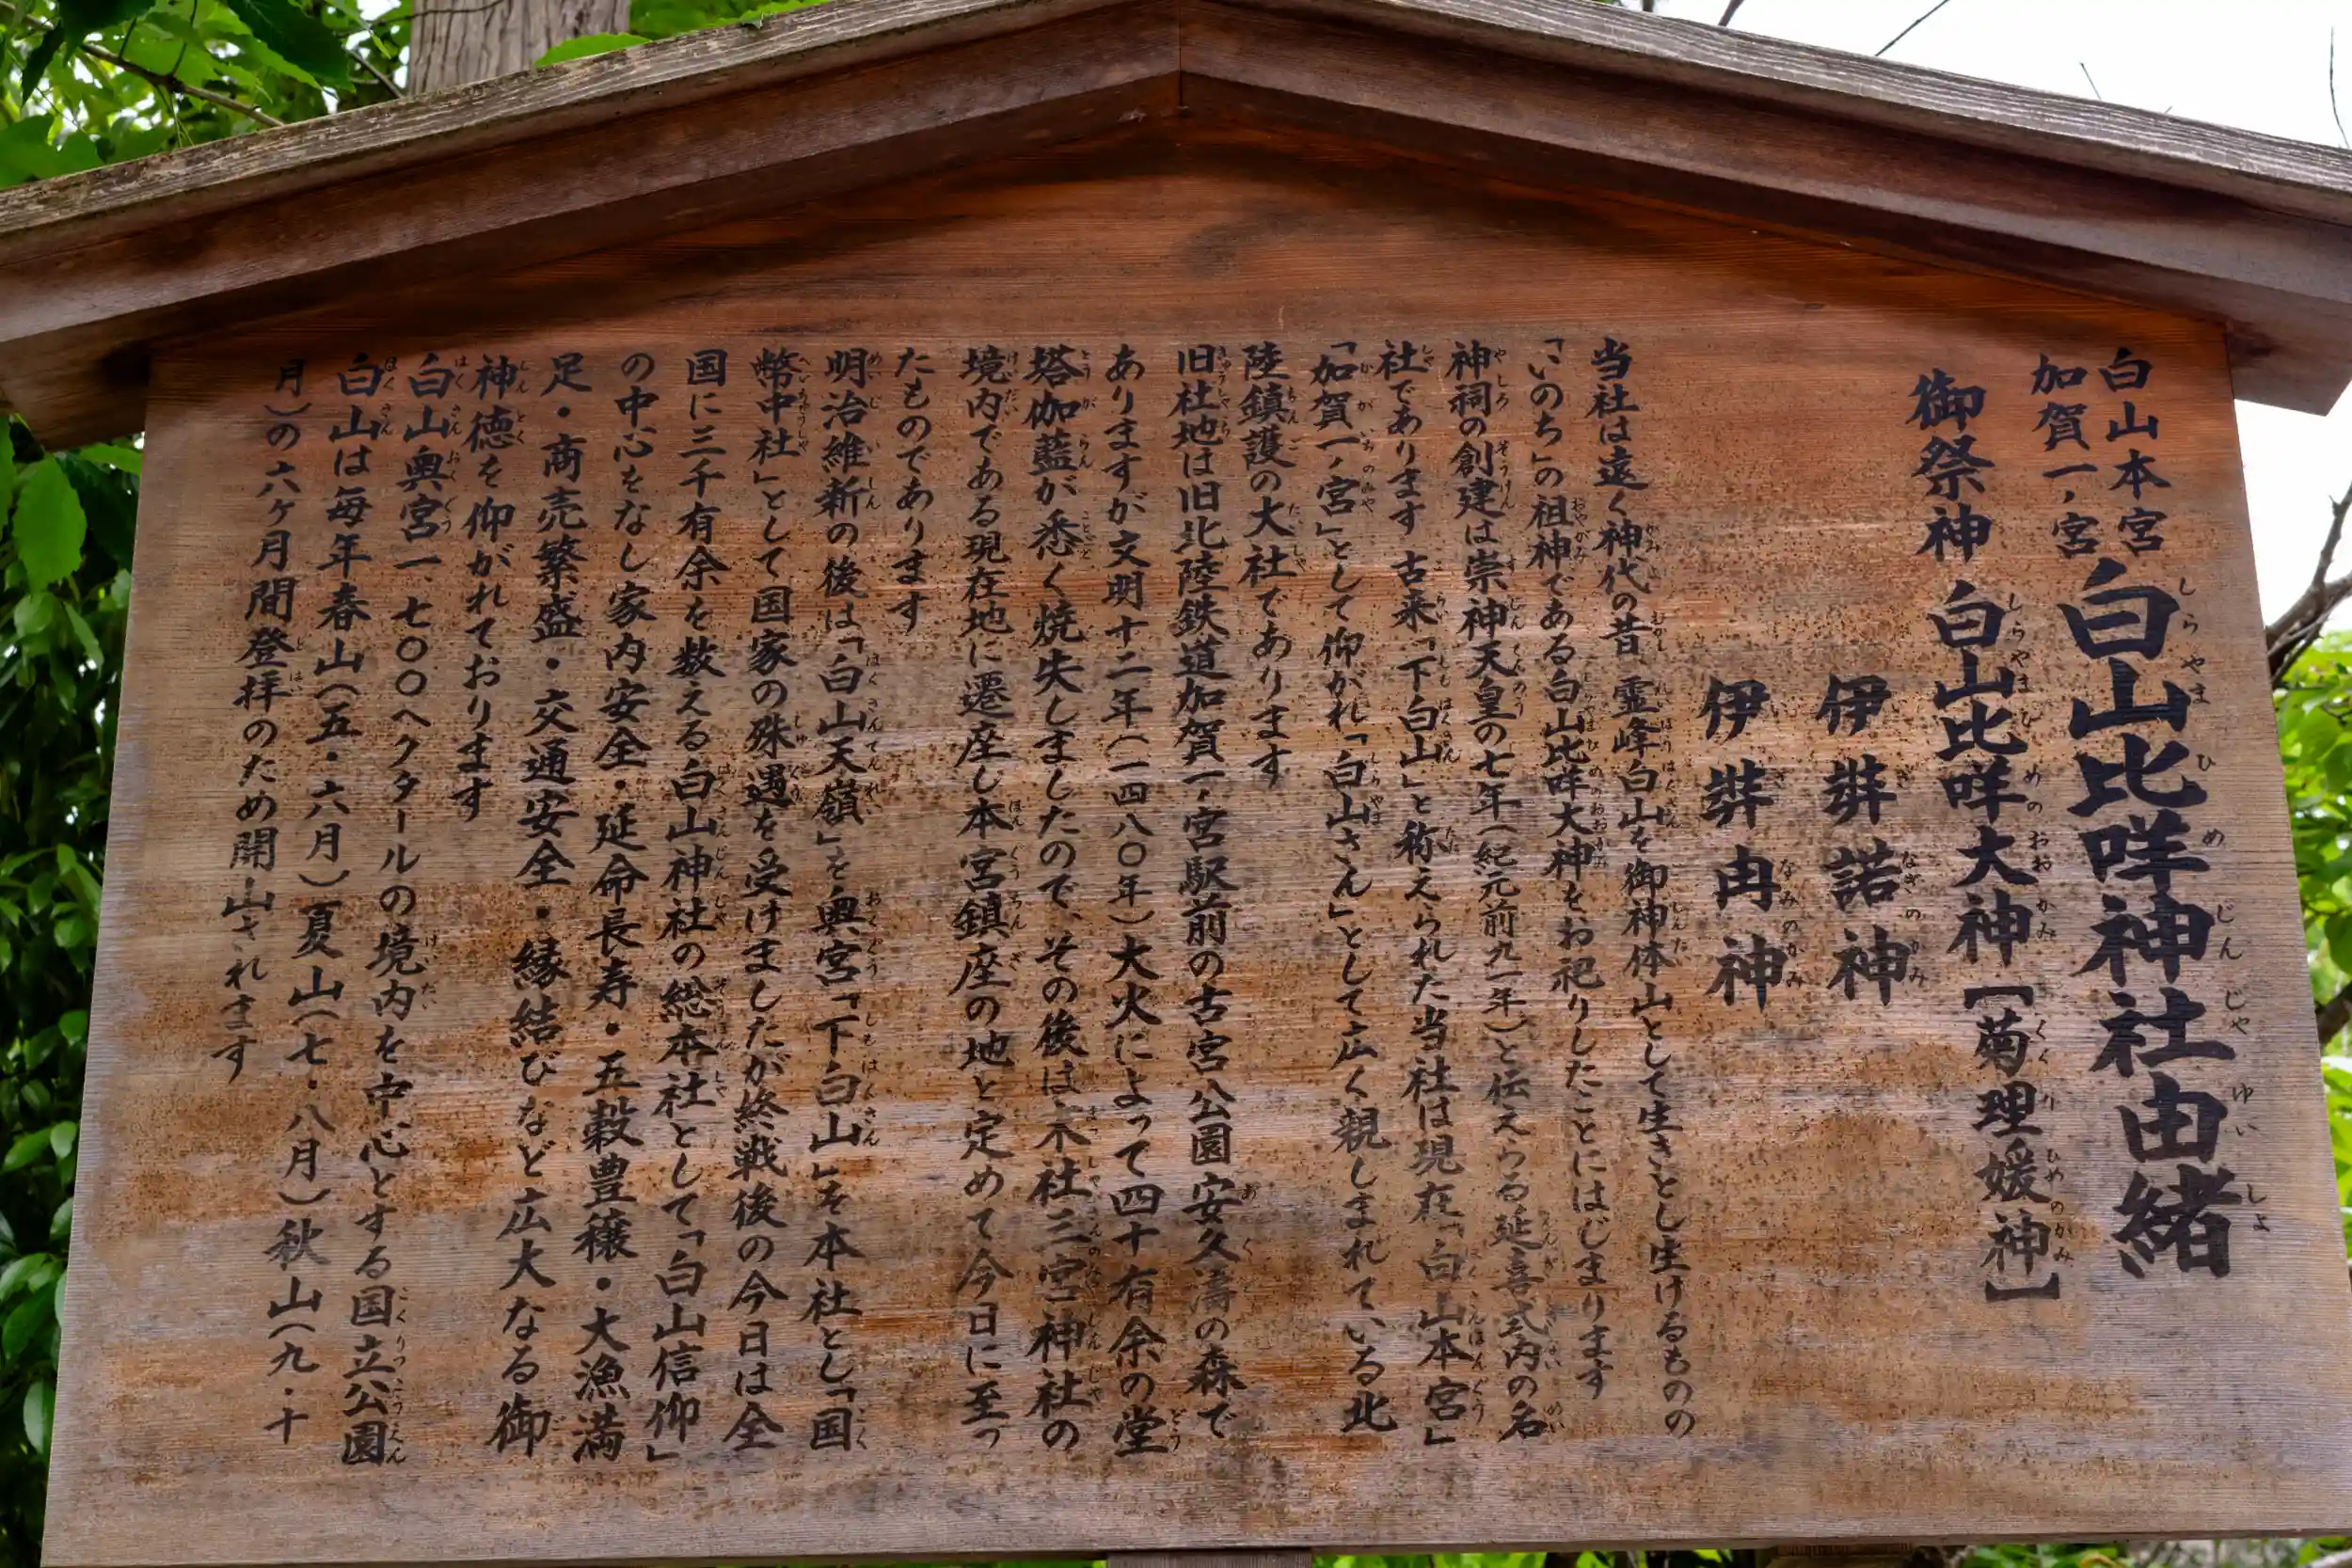 白山本宮
加賀一ノ宮
白山比咩神社由緒
御祭神 白山比咩大神【菊理媛神】
伊弉諾神
伊弉冉神
当社は遠く神代の昔 霊峰白山を御神体山として生きとし生けるものの
「いのち」の祖神である白山比咩大神をお祀りしたことにはじまります
神祠の創建は崇神天皇の七年(紀元前九一年)と伝えらる延喜式内の名
社であります 古来「下白山」と称えられた当社は現在「白山本宮」
「加賀一ノ宮」として仰がれ「白山さん」として広く親しまれている北
陸鎮護の大社であります
旧社地は旧北陸鉄道加賀一ノ宮駅前の古宮公園安久濤の森で
ありますが文明十二年(一四八〇年)大火によって四十有余の堂
塔伽藍が悉く焼失しましたので、その後は末社三宮神社の
境内である現在地に遷座し本宮鎮座の地と定めて今日に至っ
たものであります
明治維新の後は「白山天嶺」を奥宮「下白山」を本社とし「国
幣中社」として国家の殊遇を受けましたが終戦後の今日は全
国に三千有余を数える白山神社の総本社として「白山信仰」
の中心をなし家内安全・延命長寿・五穀豊穣・大漁満
足・商売繁盛・交通安全・縁結びなど広大なる御
神徳を仰がれております
白山奥宮一、七〇〇ヘクタールの境内を中心とする国立公園
白山は毎年春山(五・六月)夏山(七・八月)秋山(九・十
月)の六ヶ月間登拝のため開山されます